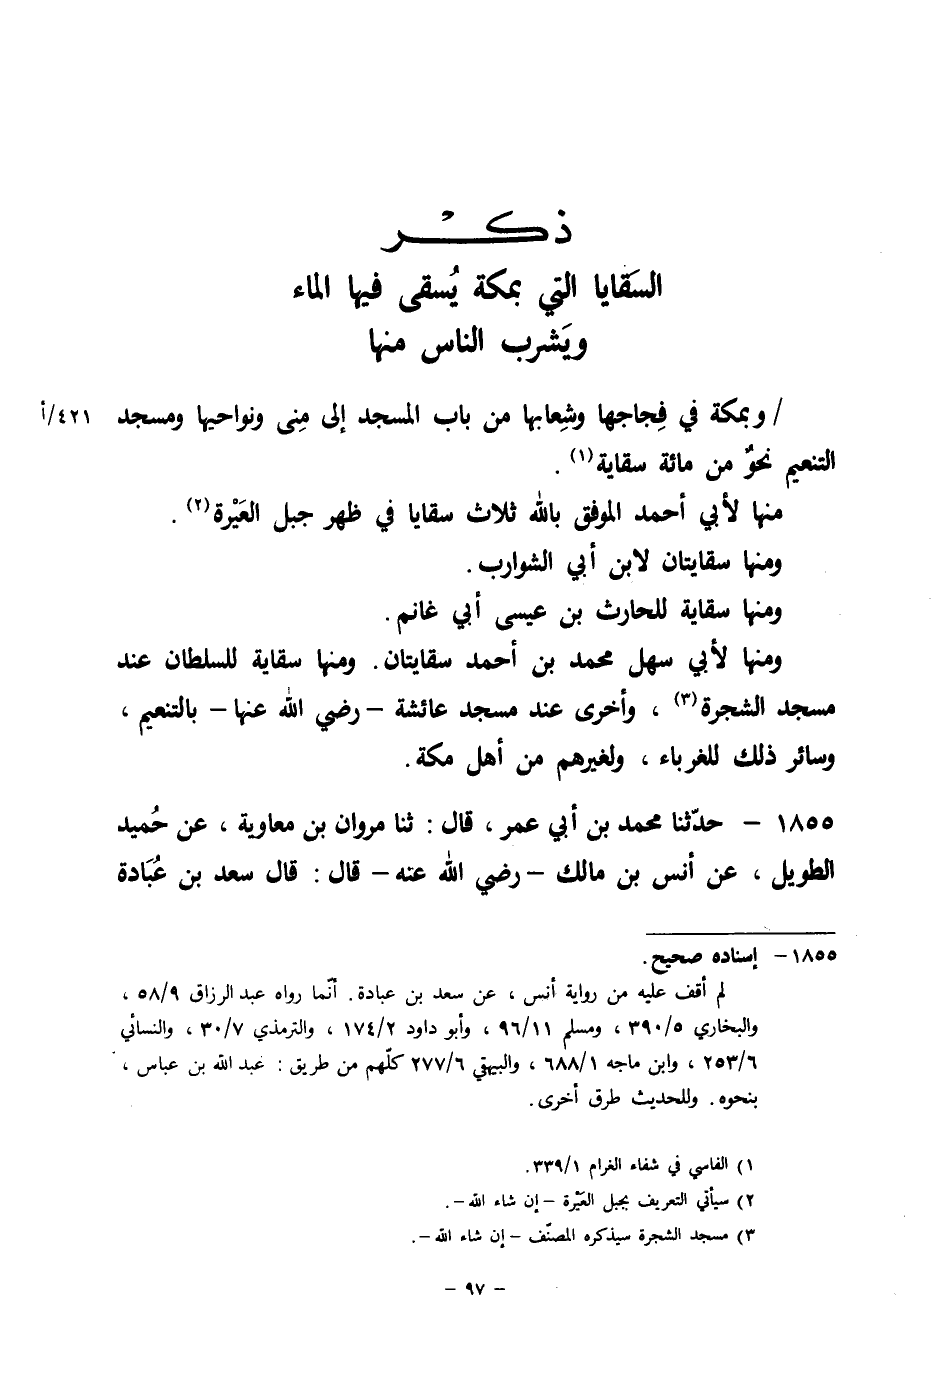 ذكر
السَقايا التي بمكة يُسقى فيها الماء
ويَشرب الناس منها
/ وبمكة في فِجاجها وشِعابها من باب المسجد إلى مِنى ونواحيها ومسجد ٤٢١/أ
التنعيم نحوٌ من مائة سقاية(١) .
منها لأبي أحمد الموفق بالله ثلاث سقايا في ظهر جبل العَيْرة(٢) .
ومنها سقايتان لابن أبي الشوارب .
ومنها سقاية للحارث بن عيسى أبي غانم .
ومنها لأبي سهل محمد بن أحمد سقايتان . ومنها سقاية للسلطان عند
مسجد الشجرة(٣) ، وأخرى عند مسجد عائشة – رضي الله عنها – بالتنعيم ،
وسائر ذلك للغرباء ، ولغيرهم من أهل مكة .
١٨٥٥ – حدّثنا محمد بن أبي عمر ، قال : ثنا مروان بن معاوية ، عن حُميد
الطويل ، عن أنس بن مالك – رضي الله عنه – قال : قال سعد بن عُبَادة
١٨٥٥ – إسناده صحيح .
لم أقف عليه من رواية أنس ، عن سعد بن عبادة . أنّما رواه عبد الرزاق ٥٨/٩ ،
والبخاري ٣٩٠/٥ ، ومسلم ٩٦/١١ ، وأبو داود ١٧٤/٢ ، والترمذي ٣٠/٧ ، والنسائي
٢٥٣/٦ ، وابن ماجه ٦٨٨/١ ، والبيهقي ٢٧٧/٦ كلّهم من طريق : عبد الله بن عباس ،
بنحوه . وللحديث طرق أخرى .
١) الفاسي في شفاء الغرام ٣٣٩/١ .
٢) سيأتي التعريف بجبل العَيْرة – إن شاء الله – .
٣) مسجد الشجرة سيذكره المصنّف – إن شاء الله – .
– ٩٧ –